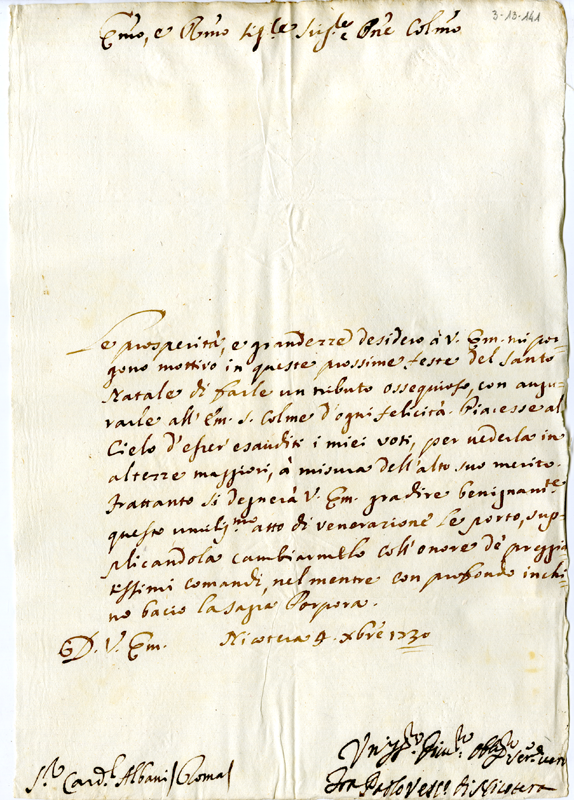 3-13-141
Emo, e Rmo Sigre Sigre e Pne Colmo
Le prosperità, e grandezze desidero à V. Em. mi por-
gono mottivo in queste prossime feste del Santo
Natale di farle un tributo ossequioso, con augu-
rarle all' Em. S. Colme d'ogni felicità. Piacesse al
Cielo d'esser esauditi i miei voti, per vederla in
altezze maggiori, à misura dell'alto suo merito.
Frattanto si degnerà V. Em. gradire benignamte
questo umilissmo atto di venerazione le porto, sup-
plicandola cambiarmelo coll'onore de' preggia-
tissimi comandi, nel mentre con profondo inchi-
no bacio la sagra Porpora.
D. V. Em. Nicotera 9. Xbre 1730
Sr Cardl Albani (Roma)
Fra Paolo Vesco di Nicotera